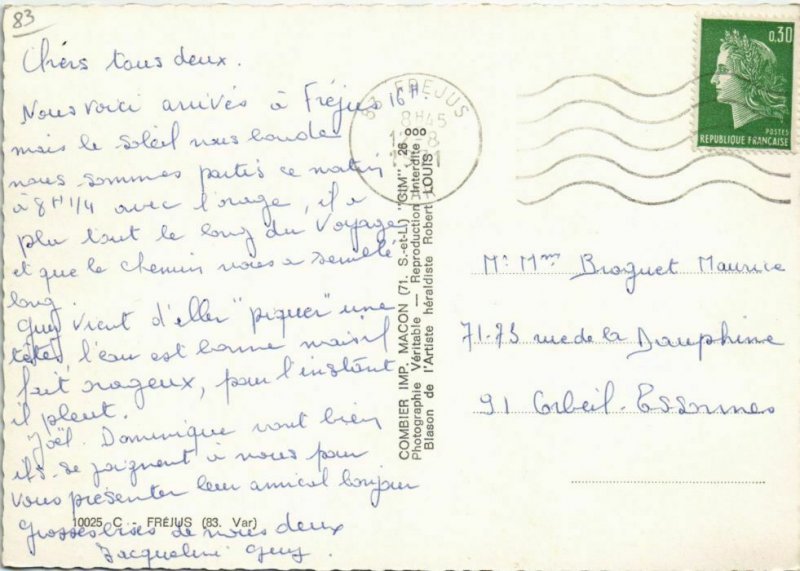 83
Chers tous deux.
Nous voici arrivés à Fréjus 16H.
mais le soleil nous boude
nous sommes partis ce matin
à 8H 1/4 avec l'orage, il a
plu tout le long du voyage
et que le chemin nous a semblé
long.
Guy vient d'aller "piquer" une
tête, l'eau est bonne mais il
fait orageux, pour l'instant
il pleut.
Joël. Dominique vont bien
ils se joignent à nous pour
vous présenter leur amical bonjour
Grosses bises de nous deux
Jacqueline Guy.
10025 C - FRÉJUS (83. Var)
COMBIER IMP. MACON (71. S.-et-L.) "CIM"
Photographie Véritable — Reproduction Interdite
Blason de l'Artiste héraldiste Robert LOUIS
FREJUS
8H45
0,30
POSTES
REPUBLIQUE FRANÇAISE
Mr Mme Broguet Maurice
71-73 rue de la Dauphine
91 Corbeil-Essonnes